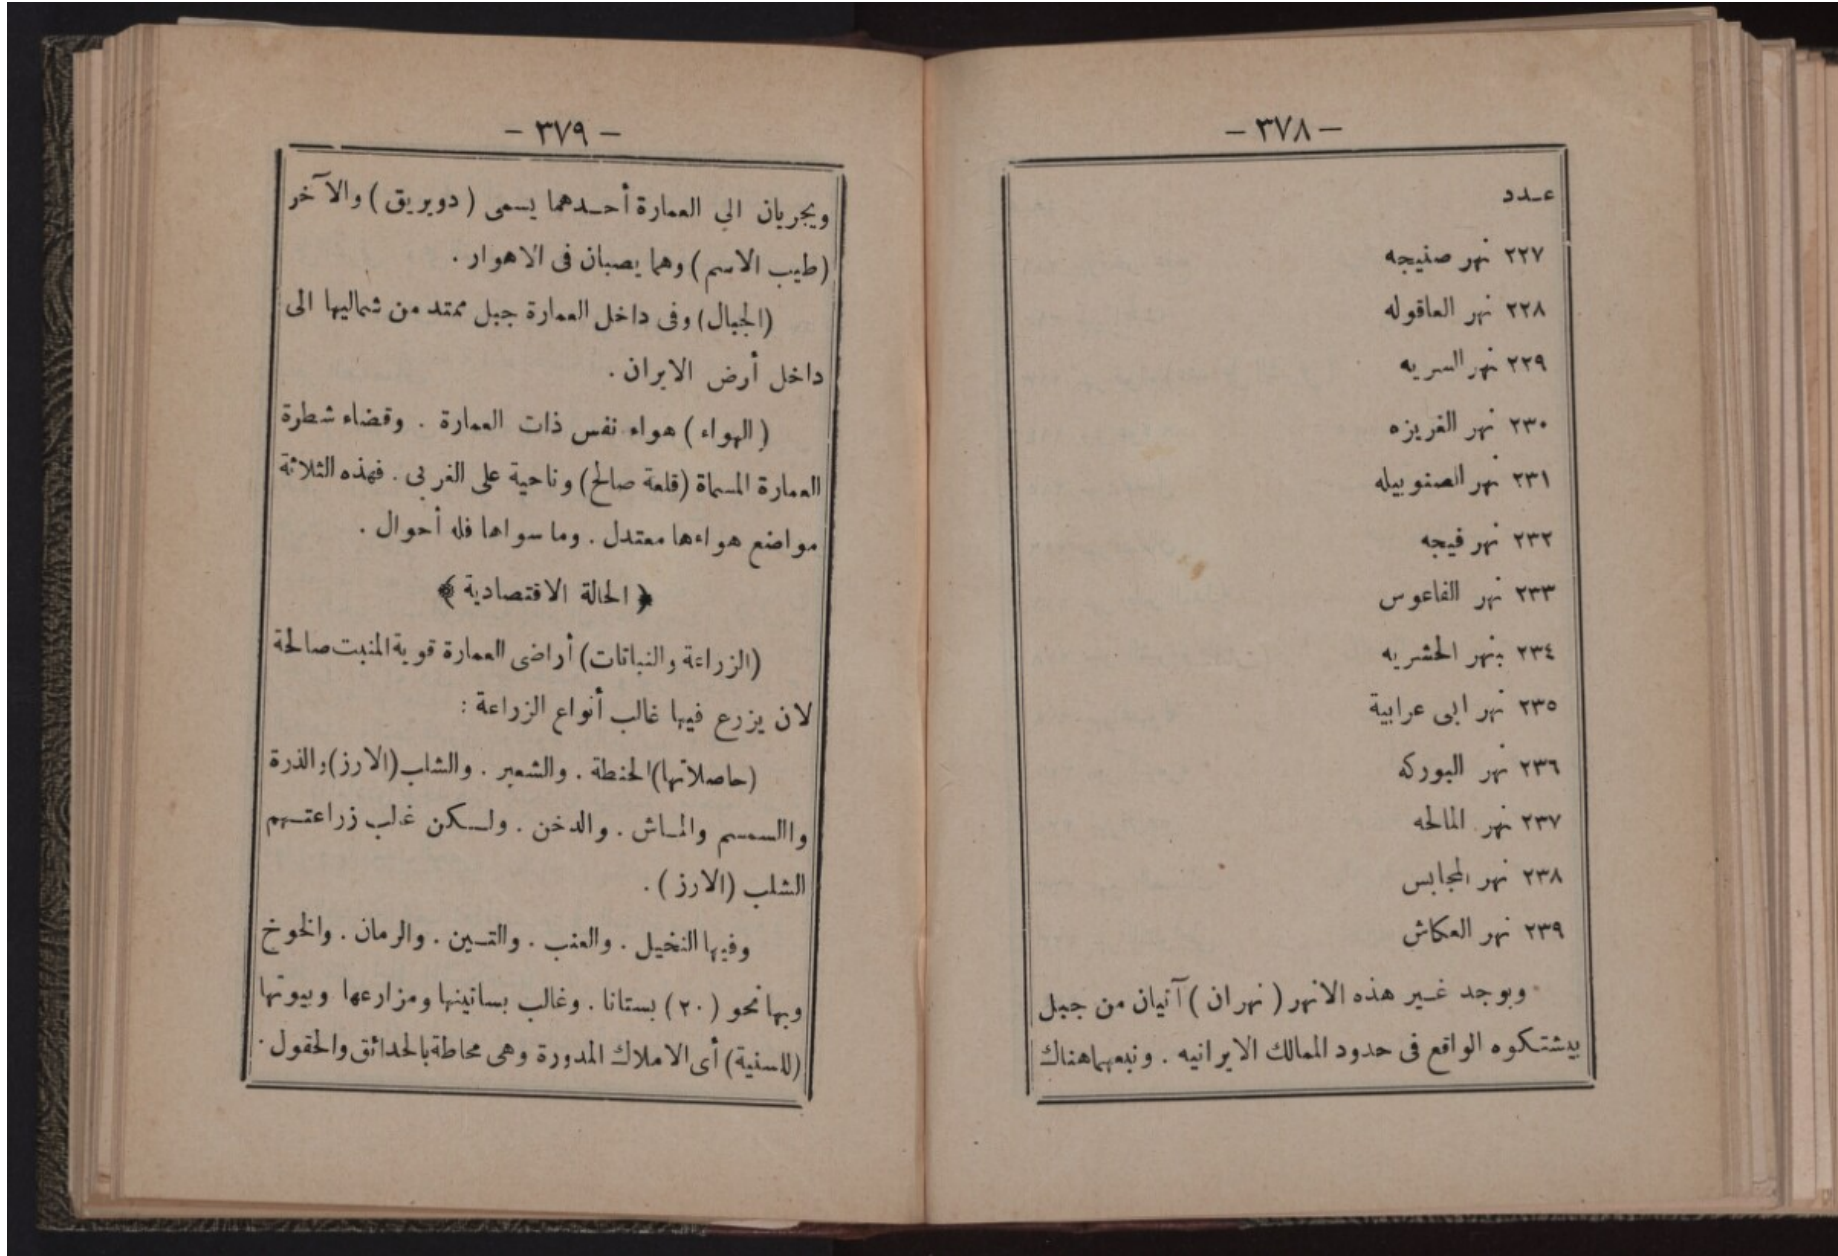 — ٣٧٨ —
عدد
٢٢٧ نهر صنيجه
٢٢٨ نهر العاقوله
٢٢٩ نهر السريه
٢٣٠ نهر الغريزه
٢٣١ نهر الصنوبيله
٢٣٢ نهر فيجه
٢٣٣ نهر الفاعوس
٢٣٤ نهر الحشريه
٢٣٥ نهر ابى عرابية
٢٣٦ نهر البوركه
٢٣٧ نهر المالحه
٢٣٨ نهر المجابس
٢٣٩ نهر العكاش
ويوجد غير هذه الانهر ( نهران ) آتيان من جبل
پيشتكوه الواقع فى حدود الممالك الايرانيه . ونبعهما هناك
— ٣٧٩ —
ويجريان الي العمارة أحدهما يسمى ( دويريق ) والآخر
(طيب الاسم) وهما يصبان فى الاهوار .
(الجبال) وفى داخل العمارة جبل ممتد من شماليها الى
داخل أرض الايران .
( الهواء ) هواء نفس ذات العمارة . وقضاء شطرة
العمارة المسماة (قلعة صالح) وناحية على الغربى . فهذه الثلاثة
مواضع هواءها معتدل . وما سواها فله أحوال .
﴿ الحالة الاقتصادية ﴾
(الزراعة والنباتات) أراضى العمارة قوية المنبت صالحة
لان يزرع فيها غالب أنواع الزراعة :
(حاصلاتها) الحنطة . والشعير . والشلب (الارز) والذرة
واالسمسم والماش . والدخن . ولكن غالب زراعتهم
الشلب (الارز) .
وفيها النخيل . والعنب . والتين . والرمان . والخوخ
وبها نحو (٢٠) بستانا . وغالب بساتينها ومزارعها وبيوتها
(للسنية) أى الاملاك المدورة وهى محاطة بالحدائق والحقول .